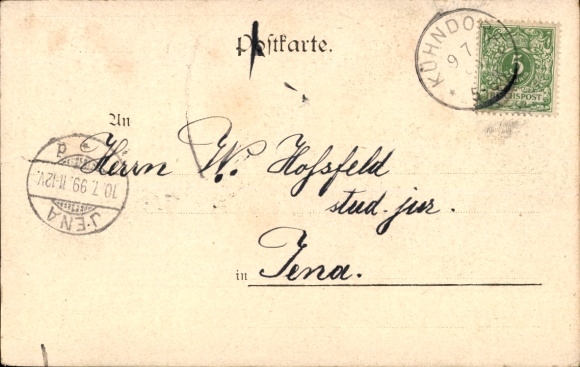 Postkarte.
KÜHNDO
9 7
5
REICHSPOST
An
Herrn W. Hossfeld
stud. jur.
in Jena.
JENA
10.7.99.11-12V.
d